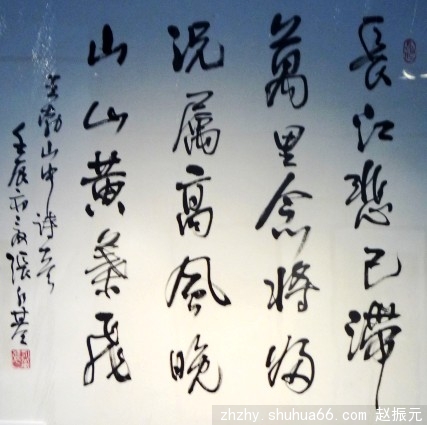 長江悲已滯
萬里念將歸
況属高風晚
山山黄葉飛
王勃山中詩一首
壬辰
zhzhy.shuhua66.com 赵振元